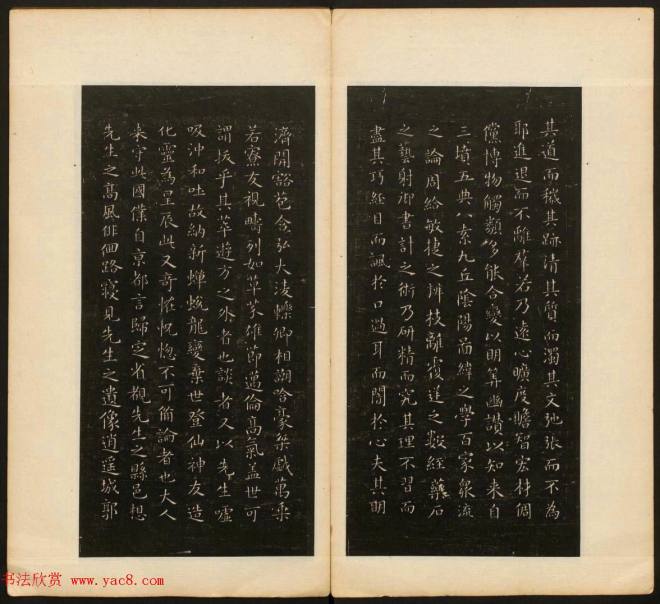 其道而穢其跡清其質而濁其文弛張而不為
耶進退而不離羣若乃遠心曠度瞻智宏材倜
儻博物觸類多能合變以明筭幽讚以知來自
三墳五典八索九丘陰陽圖緯之學百家衆流
之論周給敏捷之辨枝離覆逆之數經藥石
之藝射御書計之術乃研精而究其理不習而
盡其巧經目而諷於口過耳而闇於心夫其明
濟開豁苞含弘大淩轢卿相謿哈豪桀戲萬乘
若寮友視疇列如草芥雄節邁倫高氣盖世可
謂拔乎其萃遊方之外者也談者又以先生噓
吸沖和吐故納新蟬蛻龍變棄世登仙神友造
化靈為星辰此又奇怪怳惚不可備論者也大人
来守此國僕自京都言歸定省覩先生之縣邑想
先生之高風俳佪路寝見先生之遺像逍遥城郭
书法欣赏 www.yac8.com